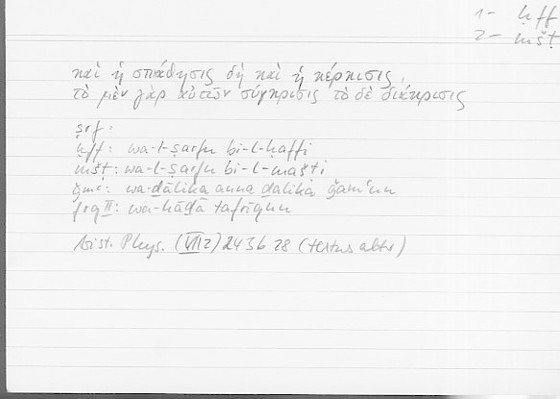 1 - ḥff
2 - mšṭ
καὶ ἡ σπάθησις δὴ καὶ ἡ κέρκισις,
τὸ μὲν γὰρ αὐτῶν σύγκρισις τὸ δὲ διάκρισις
ṣrf:
ḥff: wa-l-ṣarfu bi-l-ḥaffi
mšṭ: wa-l-ṣarfu bi-l-mašṭi
ǧmʿ: wa-ḏālika anna ḏālika ǧamʿun
frq II: wa-hāḏā tafrīqun
Arist. Phys. (VII 2) 243b 28 (textus alter)